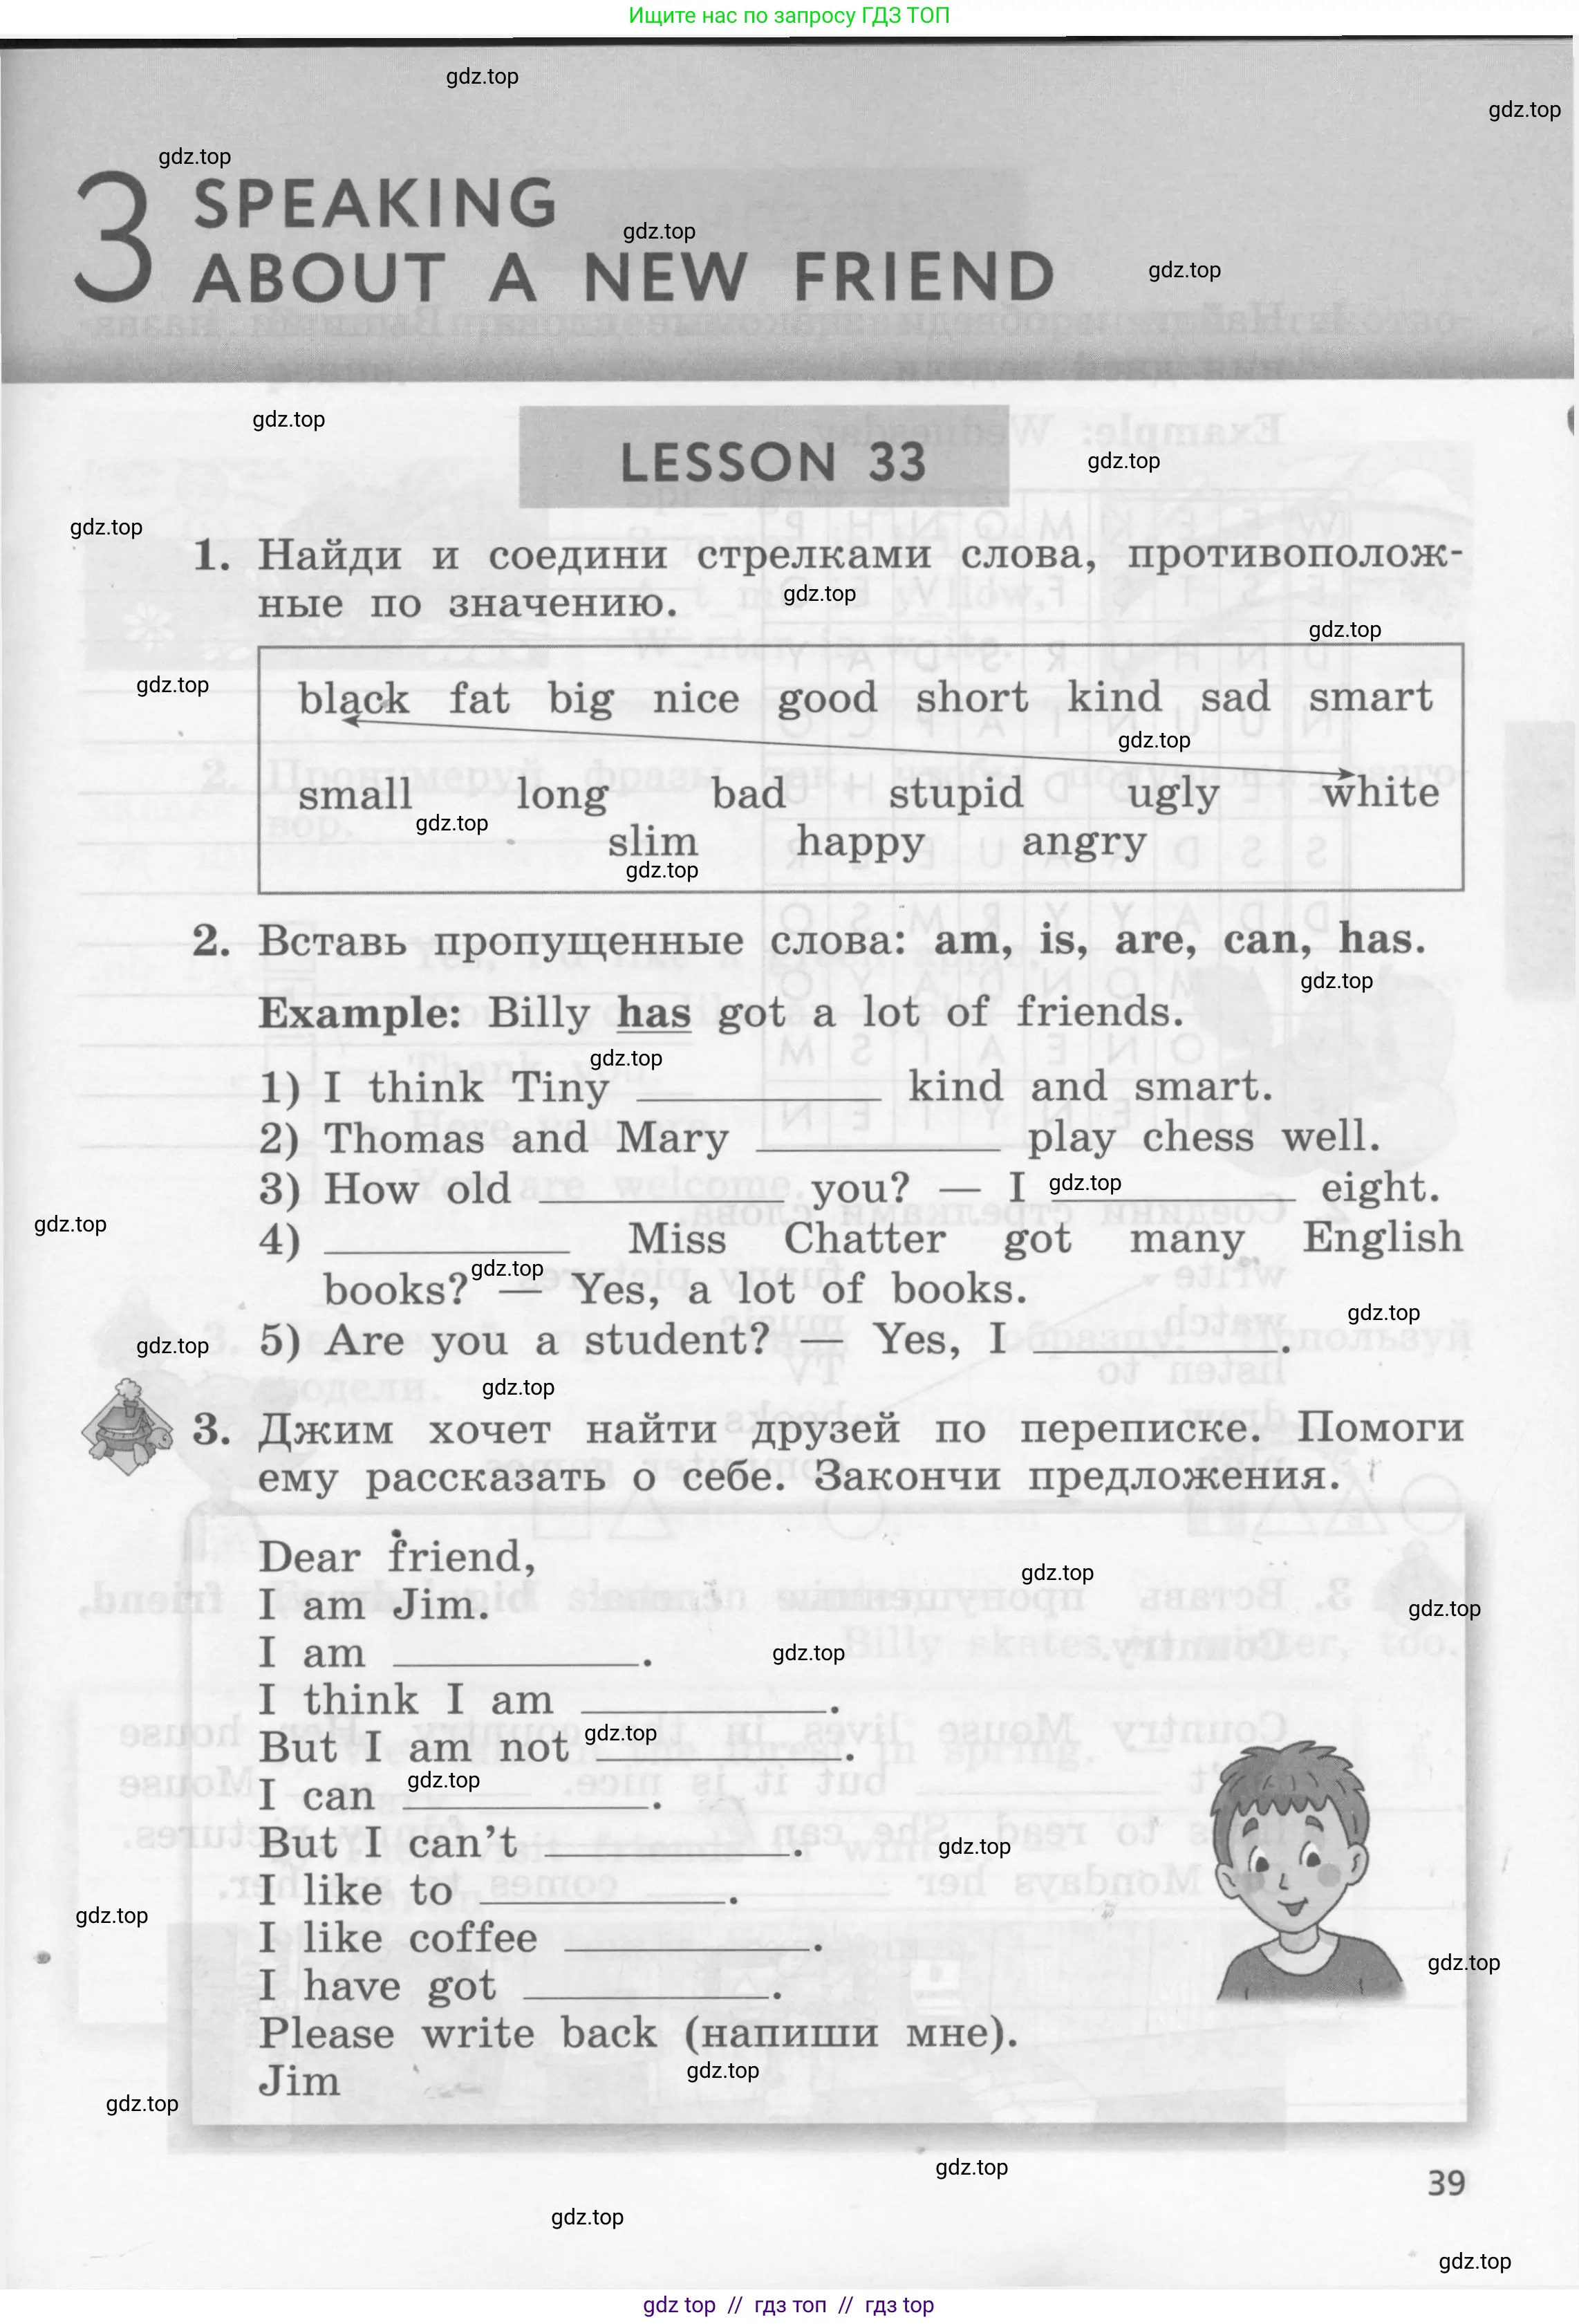 Ищите нас по запросу ГДЗ ТОП
gdz.top
gdz.top
gdz.top
3 SPEAKING
gdz.top
ABOUT A NEW FRIEND
gdz.top
gdz.top
LESSON 33
gdz.top
gdz.top
1. Найди и соедини стрелками слова, противополож-
ные по значению.
gdz.top
gdz.top
gdz.top
black fat big nice good short kind sad smart
gdz.top
small long bad stupid ugly white
gdz.top
slim happy angry
gdz.top
2. Вставь пропущенные слова: am, is, are, can, has.
gdz.top
Example: Billy has got a lot of friends.
gdz.top
1) I think Tiny __________ kind and smart.
2) Thomas and Mary __________ play chess well.
3) How old __________ you? — I __________ eight.
gdz.top
gdz.top
4) __________ Miss Chatter got many English
gdz.top
books? — Yes, a lot of books.
gdz.top
5) Are you a student? — Yes, I __________.
gdz.top
gdz.top
3. Джим хочет найти друзей по переписке. Помоги
ему рассказать о себе. Закончи предложения.
Dear friend,
gdz.top
I am Jim.
gdz.top
I am __________.
gdz.top
I think I am __________.
gdz.top
But I am not __________.
gdz.top
I can __________.
But I can't __________.
gdz.top
I like to __________.
gdz.top
I like coffee __________.
gdz.top
I have got __________.
Please write back (напиши мне).
gdz.top
Jim
gdz.top
gdz.top
39
gdz.top
gdz.top
gdz top // гдз топ // гдз top